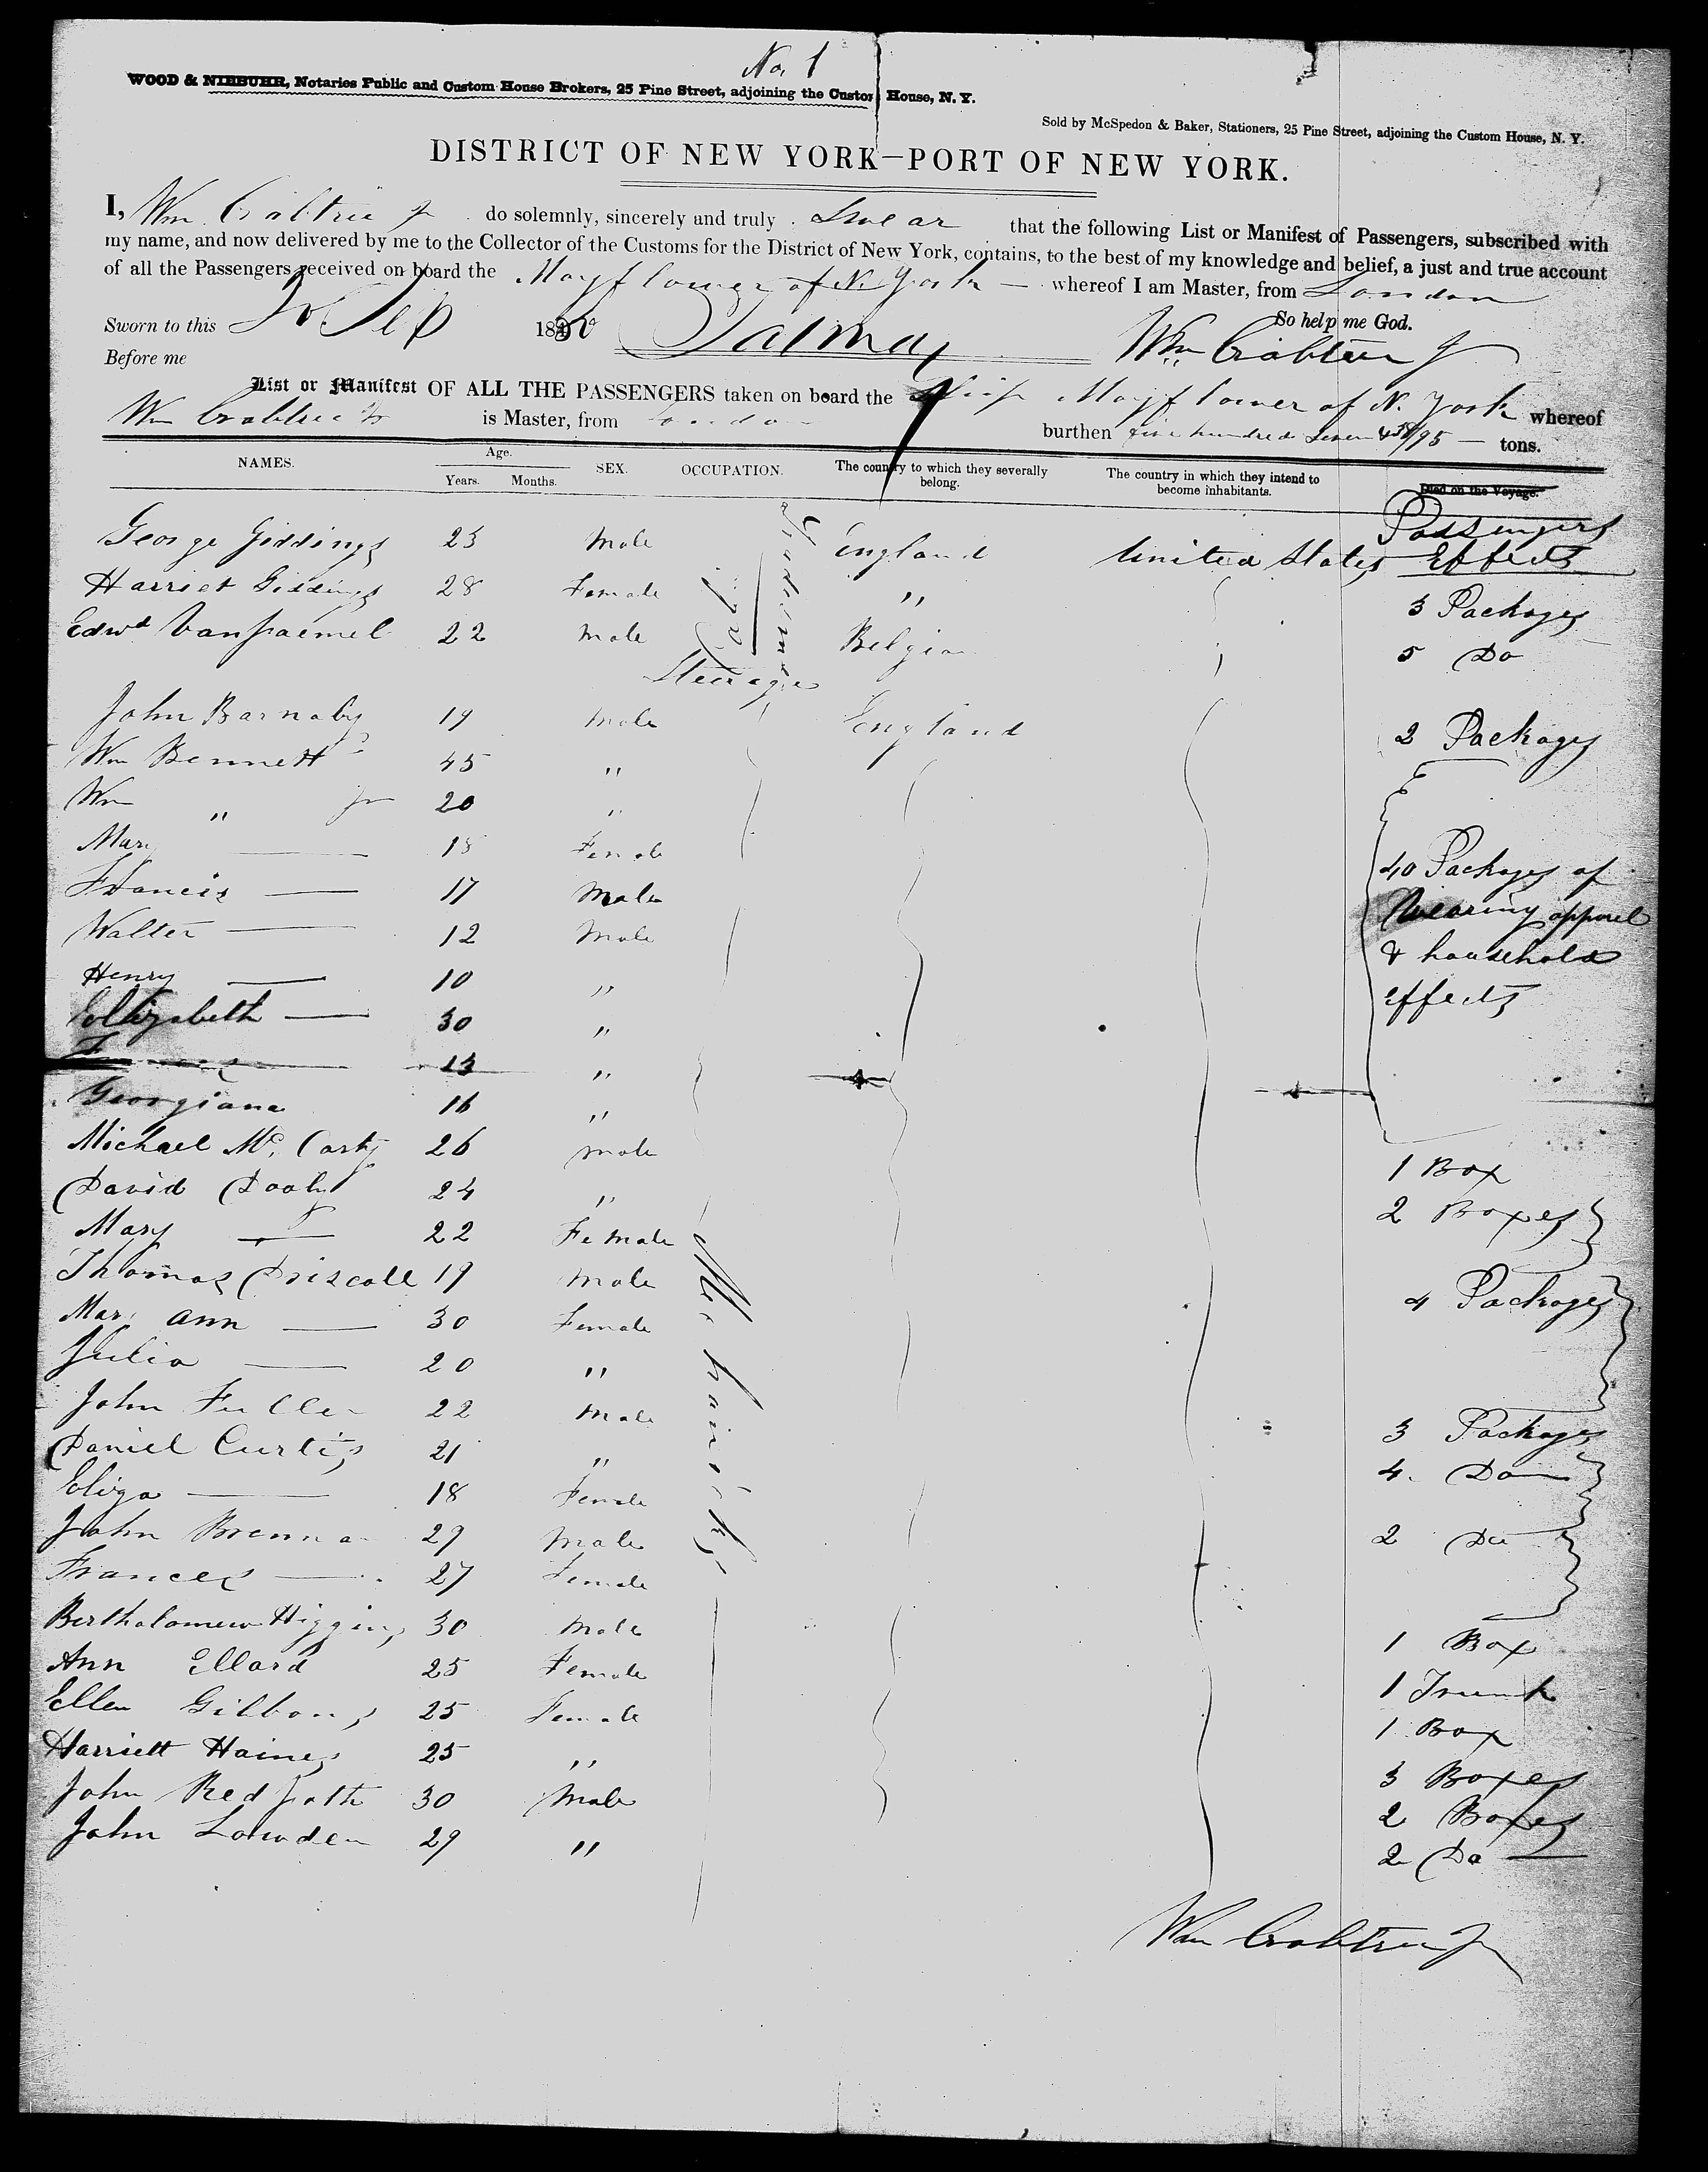 No. 1
WOOD & NIEBUHR, Notaries Public and Custom House Brokers, 25 Pine Street, adjoining the Custom House, N. Y.
Sold by McSpedon & Baker, Stationers, 25 Pine Street, adjoining the Custom House, N. Y.
DISTRICT OF NEW YORK—PORT OF NEW YORK.
I, Wm Crabtree Jr do solemnly, sincerely and truly Swear that the following List or Manifest of Passengers, subscribed with
my name, and now delivered by me to the Collector of the Customs for the District of New York, contains, to the best of my knowledge and belief, a just and true account
of all the Passengers received on board the Mayflower of N. York — whereof I am Master, from London
So help me God.
Sworn to this Sep 18 Wm Crabtree Jr
Before me
List or Manifest OF ALL THE PASSENGERS taken on board the Ship Mayflower of N. York whereof
Wm Crabtree Jr is Master, from London burthen five hundred seven /95 — tons.
NAMES. Age. Years. Months. SEX. OCCUPATION. The country to which they severally belong. The country in which they intend to become inhabitants. Died on the Voyage.
Passengers
George Giddings 23 Male England United States Effects
Harriet Giddings 28 Female " 3 Packages
Edwd 22 Male Belgian 5 Do
Steerage
John Barnaby 19 Male England 2 Packages
Wm Bennett 45 "
Wm " Jr 20 "
Mary — 18 Female
Francis — 17 Male 40 Packages of
Walter — 12 Male Wearing apparel
Henry — 10 " & household
Elizabeth — 30 " effects
13 "
Georgiana 16 "
Michael Mc Carty 26 Male 1 Box
David Dooly 24 " 2 Boxes
Mary — 22 Female
Thomas Driscoll 19 Male 4 Packages
Mary Ann — 30 Female
Julia — 20 "
John Fuller 22 Male 3 Packages
Daniel Curtis 21 " 4 Do
Eliza — 18 Female
John Brennan 29 Male 2 Do
Frances — 27 Female
Bartholomew Higgins 30 Male 1 Box
Ann Ellard 25 Female 1 Trunk
Ellen Gibbons 25 Female 1 Box
Harriett Haines 25 " 3 Boxes
John Redpath 30 Male 2 Boxes
John Lowden 29 " 2 Do —
Mechanicks
Wm Crabtree Jr